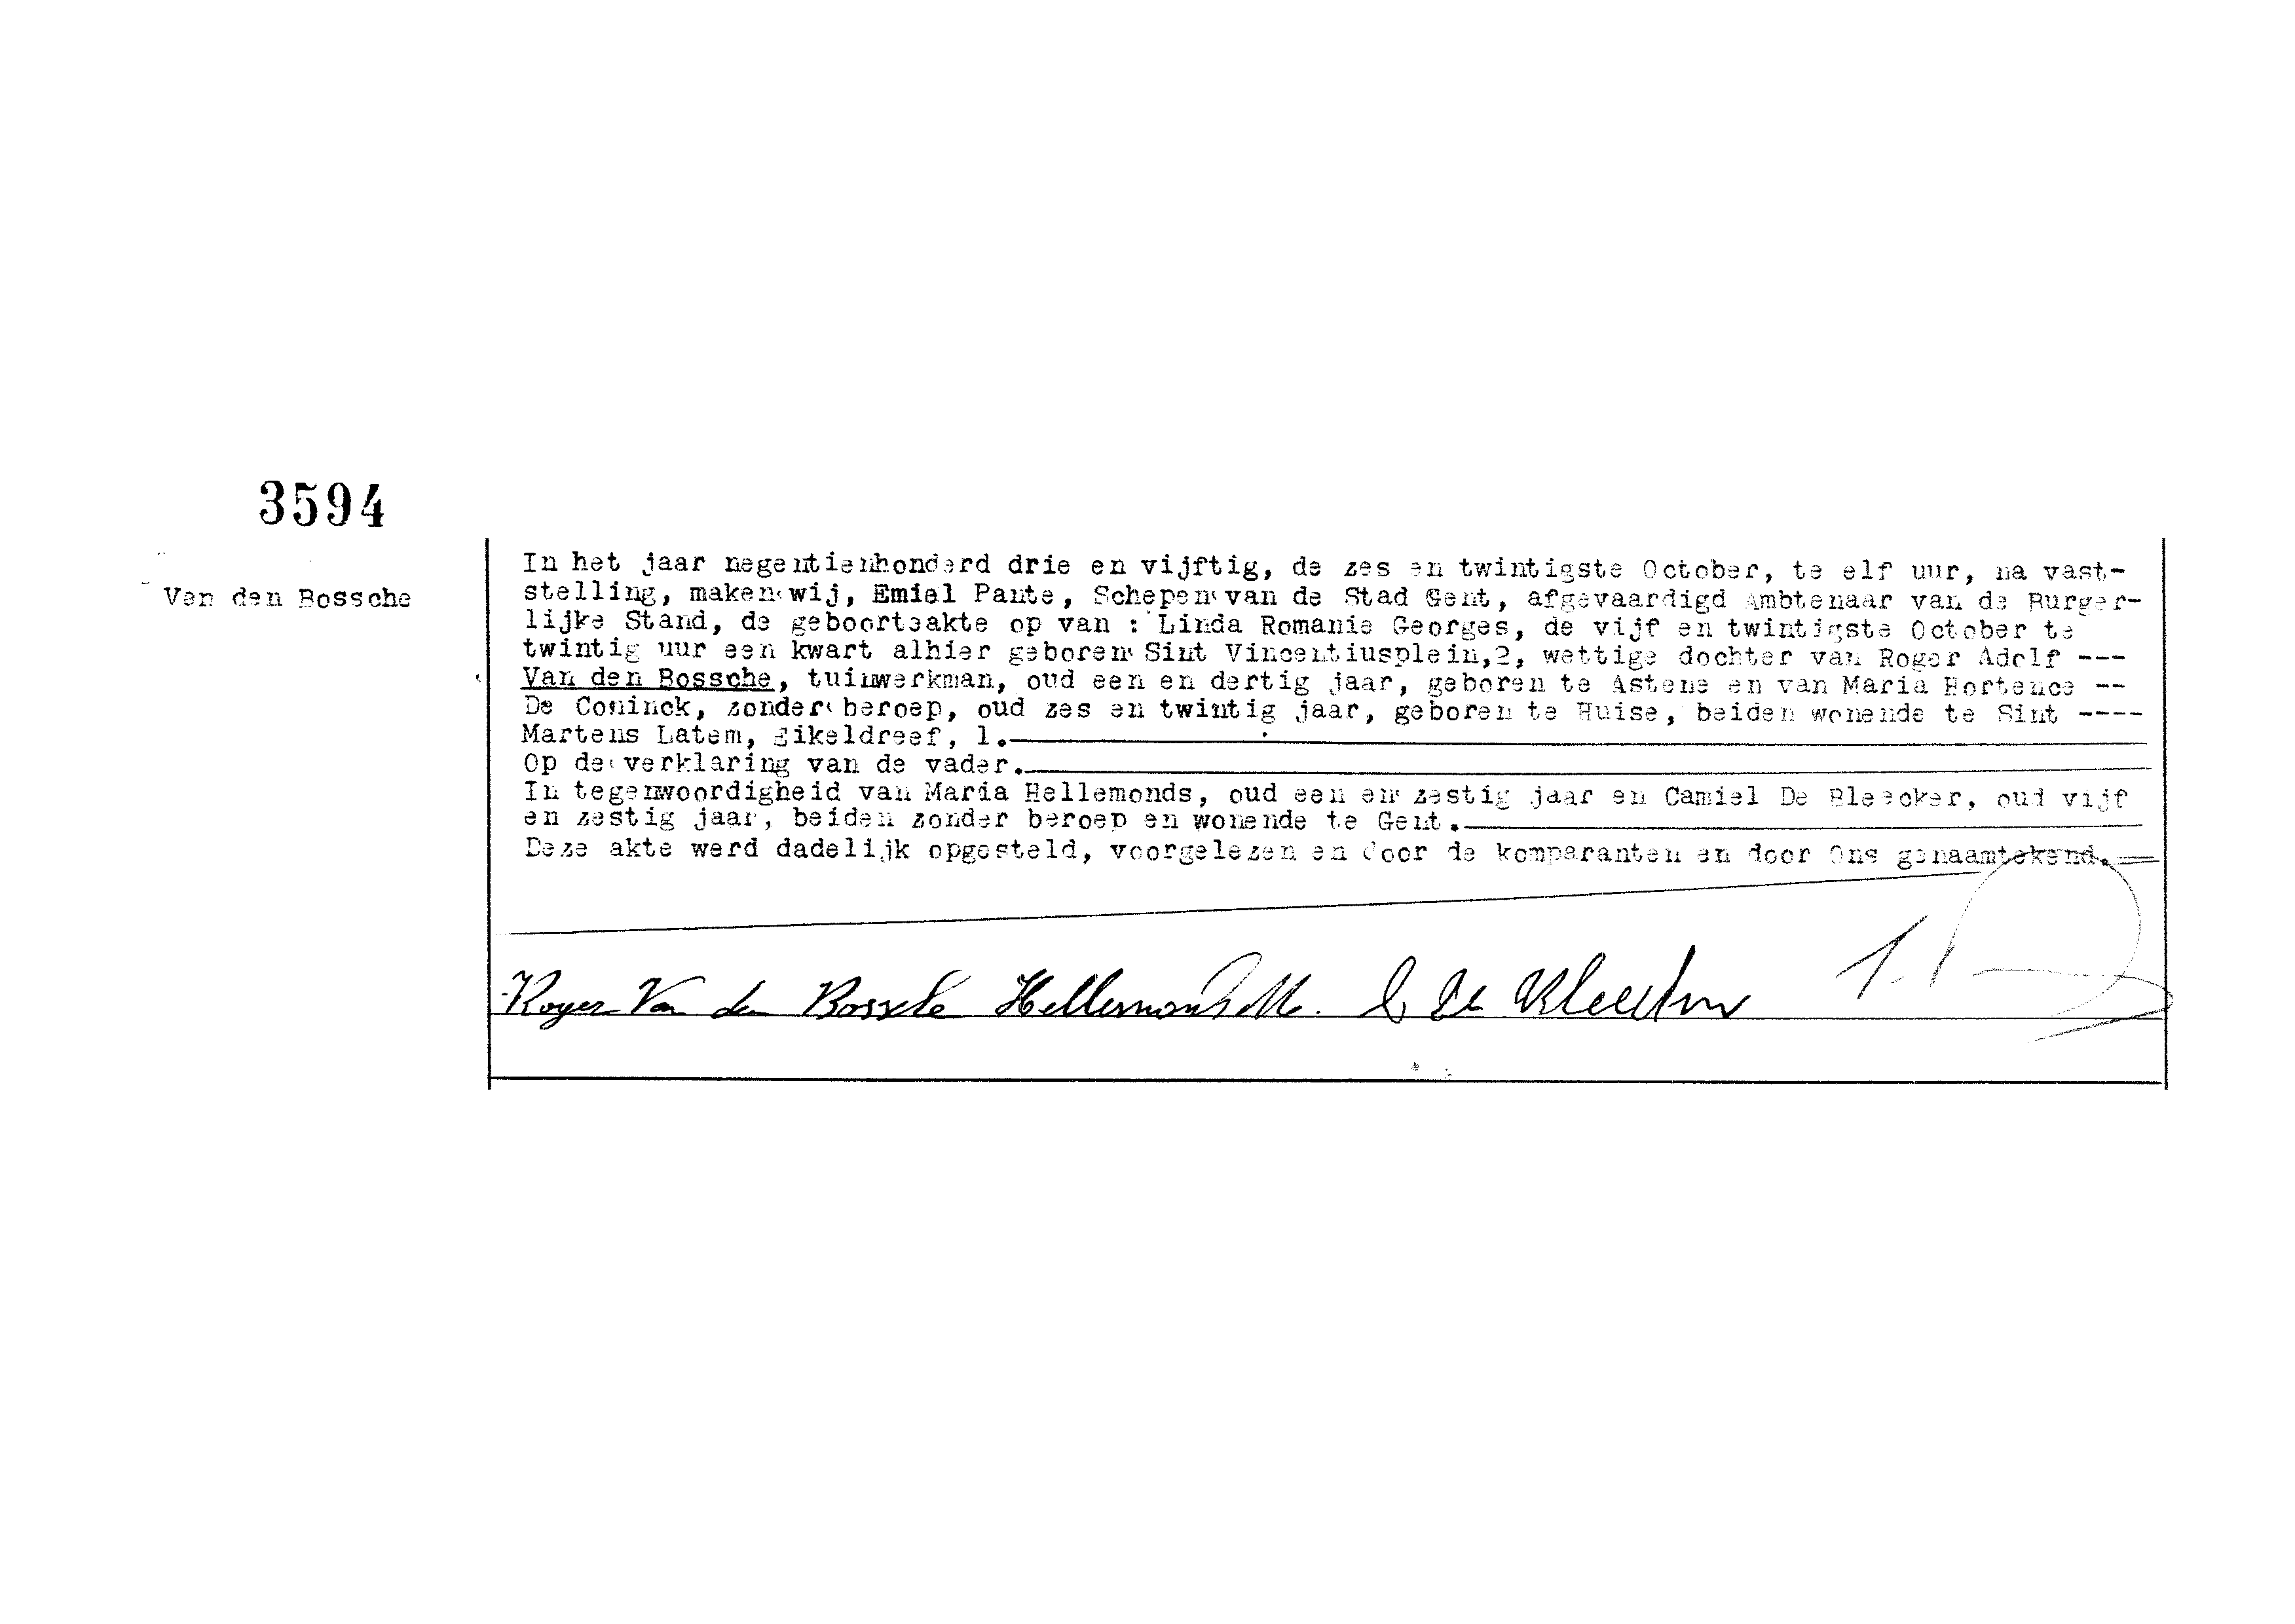 3594
Van den Bossche
In het jaar negentienhonderd drie en vijftig, de zes en twintigste October, te elf uur, na vast-
stelling, maken wij, Emiel Pante, Schepen van de Stad Gent, afgevaardigd Ambtenaar van de Burger-
lijke Stand, de geboorteakte op van : Linda Romanie Georges, de vijf en twintigste October te
twintig uur een kwart alhier geboren Sint Vincentiusplein,2, wettige dochter van Roger Adolf ---
Van den Bossche, tuinwerkman, oud een en dertig jaar, geboren te Astene en van Maria Hortence --
De Coninck, zonder beroep, oud zes en twintig jaar, geboren te Huise, beiden wonende te Sint ----
Martens Latem, Eikeldreef, 1.
Op de verklaring van de vader.
In tegenwoordigheid van Maria Hellemonds, oud een en zestig jaar en Camiel De Bleecker, oud vijf
en zestig jaar, beiden zonder beroep en wonende te Gent.
Deze akte werd dadelijk opgesteld, voorgelezen en door de komparanten en door Ons genaamtekend.
Roger Van den Bossche Hellemonds M. C De Bleecker